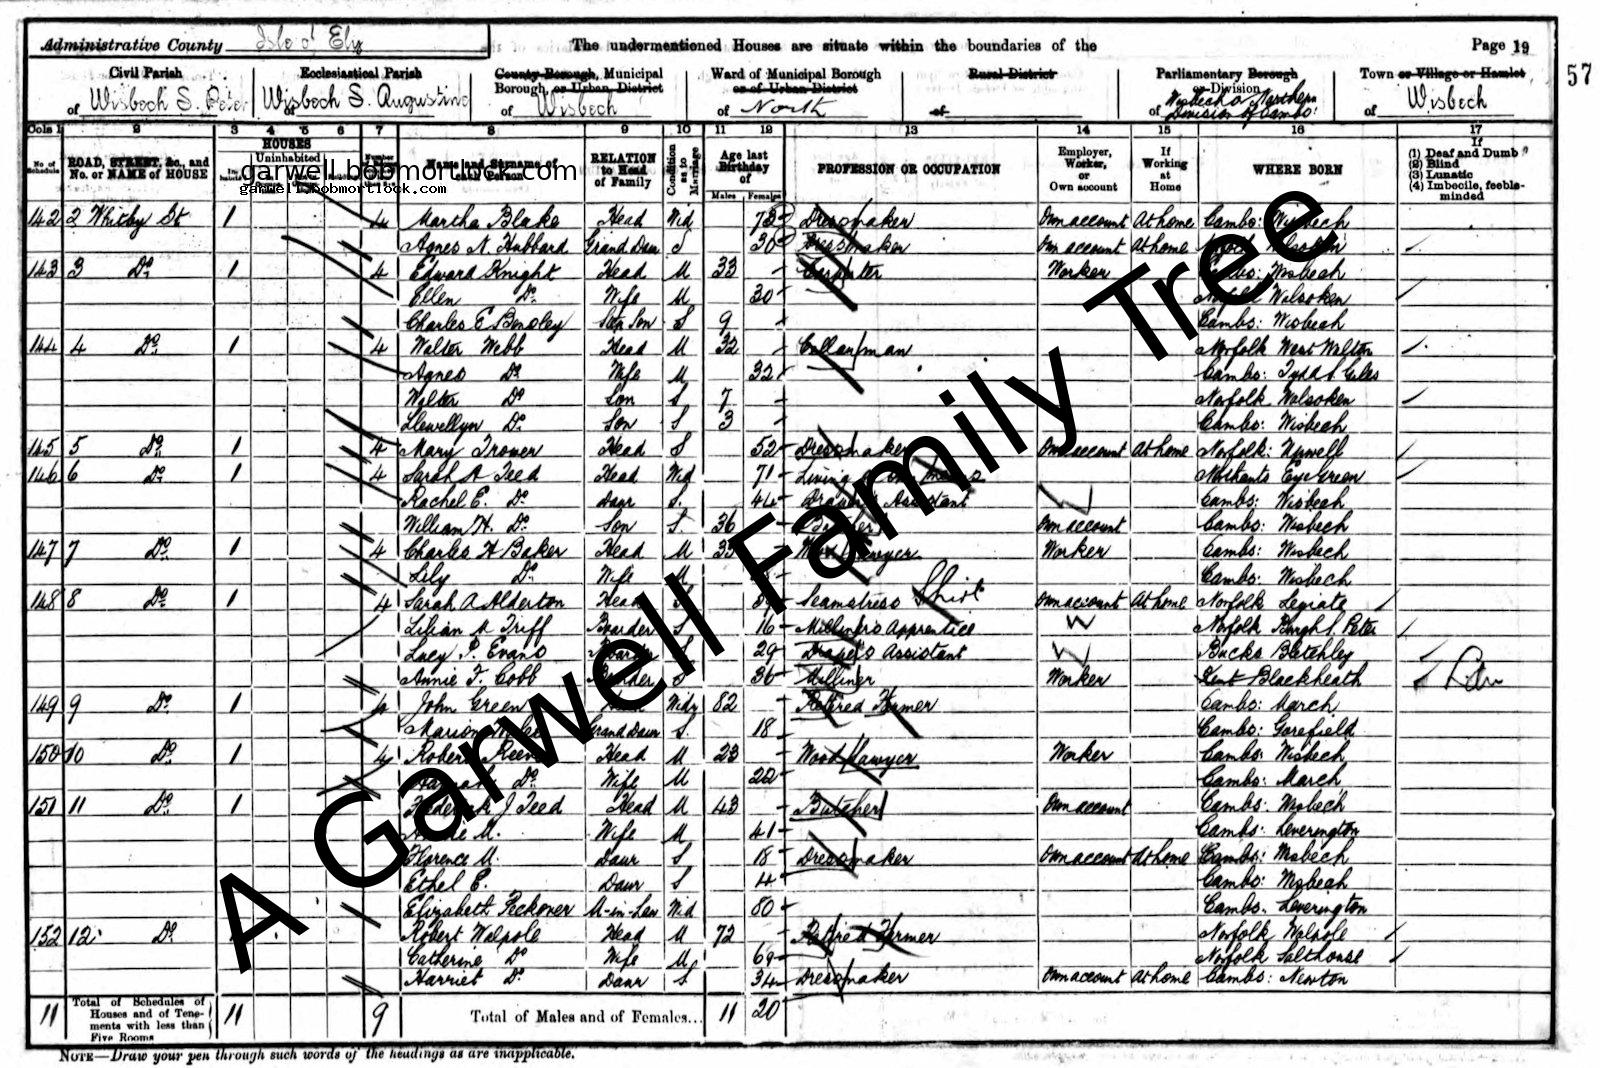 Administrative County Isle of Ely
The undermentioned Houses are situate within the boundaries of the
Page 19
57
Civil Parish of Wisbech S. Peter
Ecclesiastical Parish of Wisbech S. Augustine
County Borough, Municipal Borough, or Urban District of Wisbech
Ward of Municipal Borough or of Urban District of North
Rural District of
Parliamentary Borough or Division of Wisbech or Northern Division of Cambs:
Town or Village or Hamlet of Wisbech
Cols 1 2 3 4 5 6 7 8 9 10 11 12 13 14 15 16 17
No. of Schedule
ROAD, STREET, &c., and No. or NAME of HOUSE
HOUSES
Uninhabited
Name and Surname of each Person
RELATION to Head of Family
Condition as to Marriage
Age last Birthday of
Males Females
PROFESSION OR OCCUPATION
Employer, Worker, or Own account
If Working at Home
WHERE BORN
If (1) Deaf and Dumb (2) Blind (3) Lunatic (4) Imbecile, feeble-minded
garwell.bobmortlock.com
garwell.bobmortlock.com
142 2 Whitby St 1 4 Martha Blake Head Wid Dressmaker Own account At home Cambs: Wisbech
Agnes N. Hubbard Grand Daur S 30 Dressmaker Own account At home Norfolk Walsoken
143 3 Do. 1 4 Edward Knight Head M 33 Carpenter Worker Cambs: Wisbech
Ellen Do. Wife M 30 Norfolk Walsoken
Charles E Bensley Step Son S 9 Cambs: Wisbech
144 4 Do. 1 4 Walter Webb Head M 32 Norfolk West Walton
Agnes Do. Wife M 32 Cambs: Tydd S. Giles
Walter Do. Son S 7 Norfolk Walsoken
Llewellyn Do. Son S 3 Cambs: Wisbech
145 5 Do. 1 4 Mary Trower Head S 52 Dressmaker Own account At home Norfolk: Upwell
146 6 Do. 1 4 Sarah A Teed Head Wid 71 Living on own means Northants Eye Green
Rachel E. Do. Daur S. 44 Draper's Assistant Cambs: Wisbech
William H. Do. Son S. 36 Butcher Own account Cambs: Wisbech
147 7 Do. 1 4 Charles H Baker Head M Wood Sawyer Worker Cambs: Wisbech
Lily Do. Wife M Cambs: Wisbech
148 8 Do. 1 4 Sarah A Alderton Head S Seamstress Shirt Own account At home Norfolk Legiate
Lilian M Triff Boarder S 16 Milliners Apprentice Norfolk Burgh S. Peter
Lucy P. Evans Boarder S 29 Draper's Assistant Bucks Bletchley
Annie F. Cobb Boarder S 36 Milliner Worker Kent Blackheath
149 9 Do. 1 4 John Green Head Widr 82 Retired Farmer Cambs: March
Marion Grand Daur S. 18 Cambs: Gorefield
150 10 Do. 1 4 Robert Reeve Head M 23 Wood Sawyer Worker Cambs: Wisbech
Hannah Do. Wife M 22 Cambs: March
151 11 Do. 1 Frederick J Teed Head M 43 Butcher Own account Cambs: Wisbech
M. Wife M 41 Cambs: Leverington
Florence M. Daur S 18 Dressmaker Own account At home Cambs: Wisbech
Ethel E. Daur S 4 Cambs: Wisbech
Elizabeth Peckover M-in-Law Wid 80 Cambs. Leverington
152 12 Do. Robert Walpole Head M 72 Retired Farmer Norfolk Walpole
Catherine Do. Wife M 69 Norfolk Salthouse
Harriet Do. Daur S 34 Dressmaker Own account At home Cambs: Newton
11 Total of Schedules of Houses and of Tenements with less than Five Rooms 11 9 Total of Males and of Females... 11 20
NOTE—Draw your pen through such words of the headings as are inapplicable.
A Garwell Family Tree